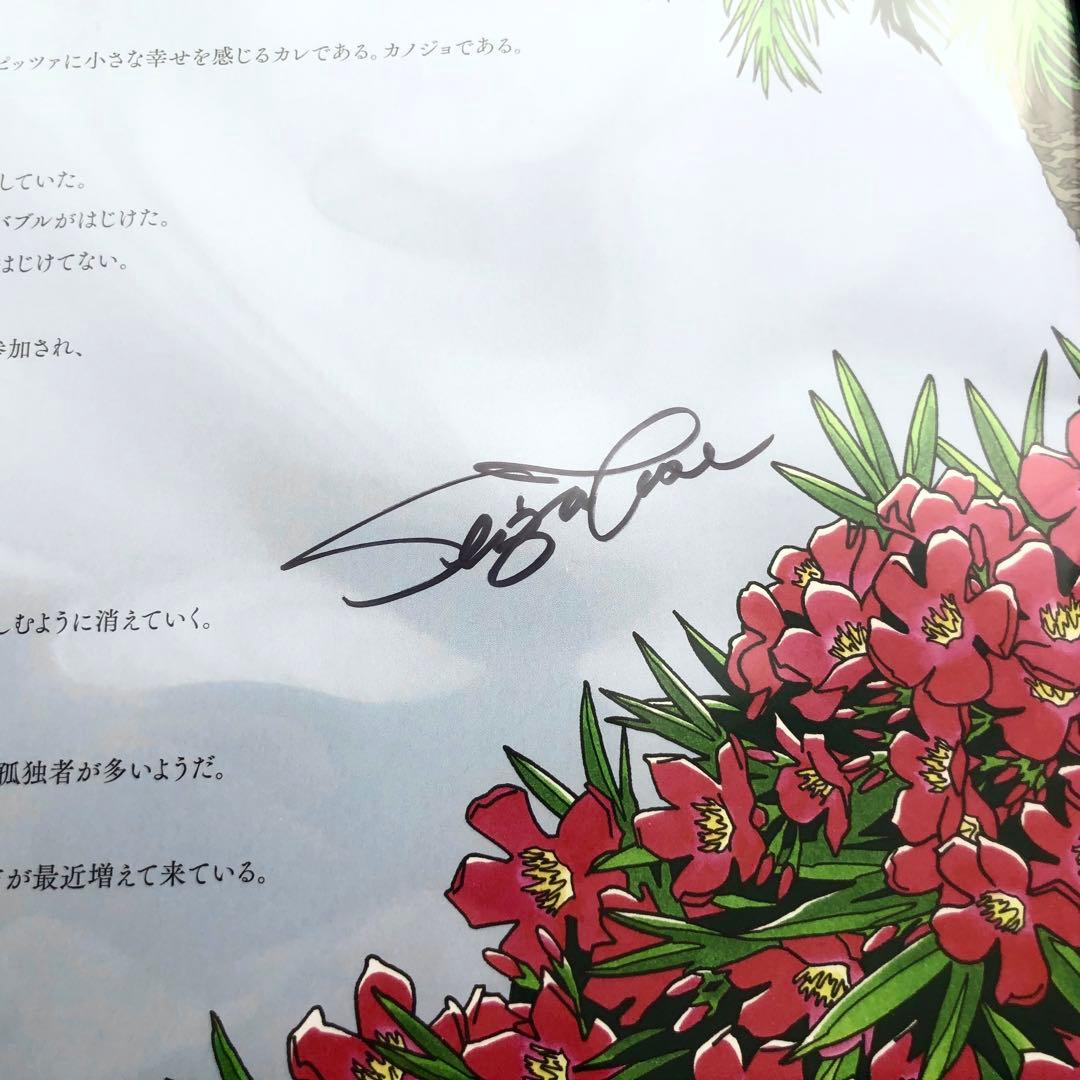 ピッツァに小さな幸せを感じるカレである。カノジョである。
していた。
バブルがはじけた。
はじけてない。
参加され、
しむように消えていく。
孤独者が多いようだ。
が最近増えて来ている。